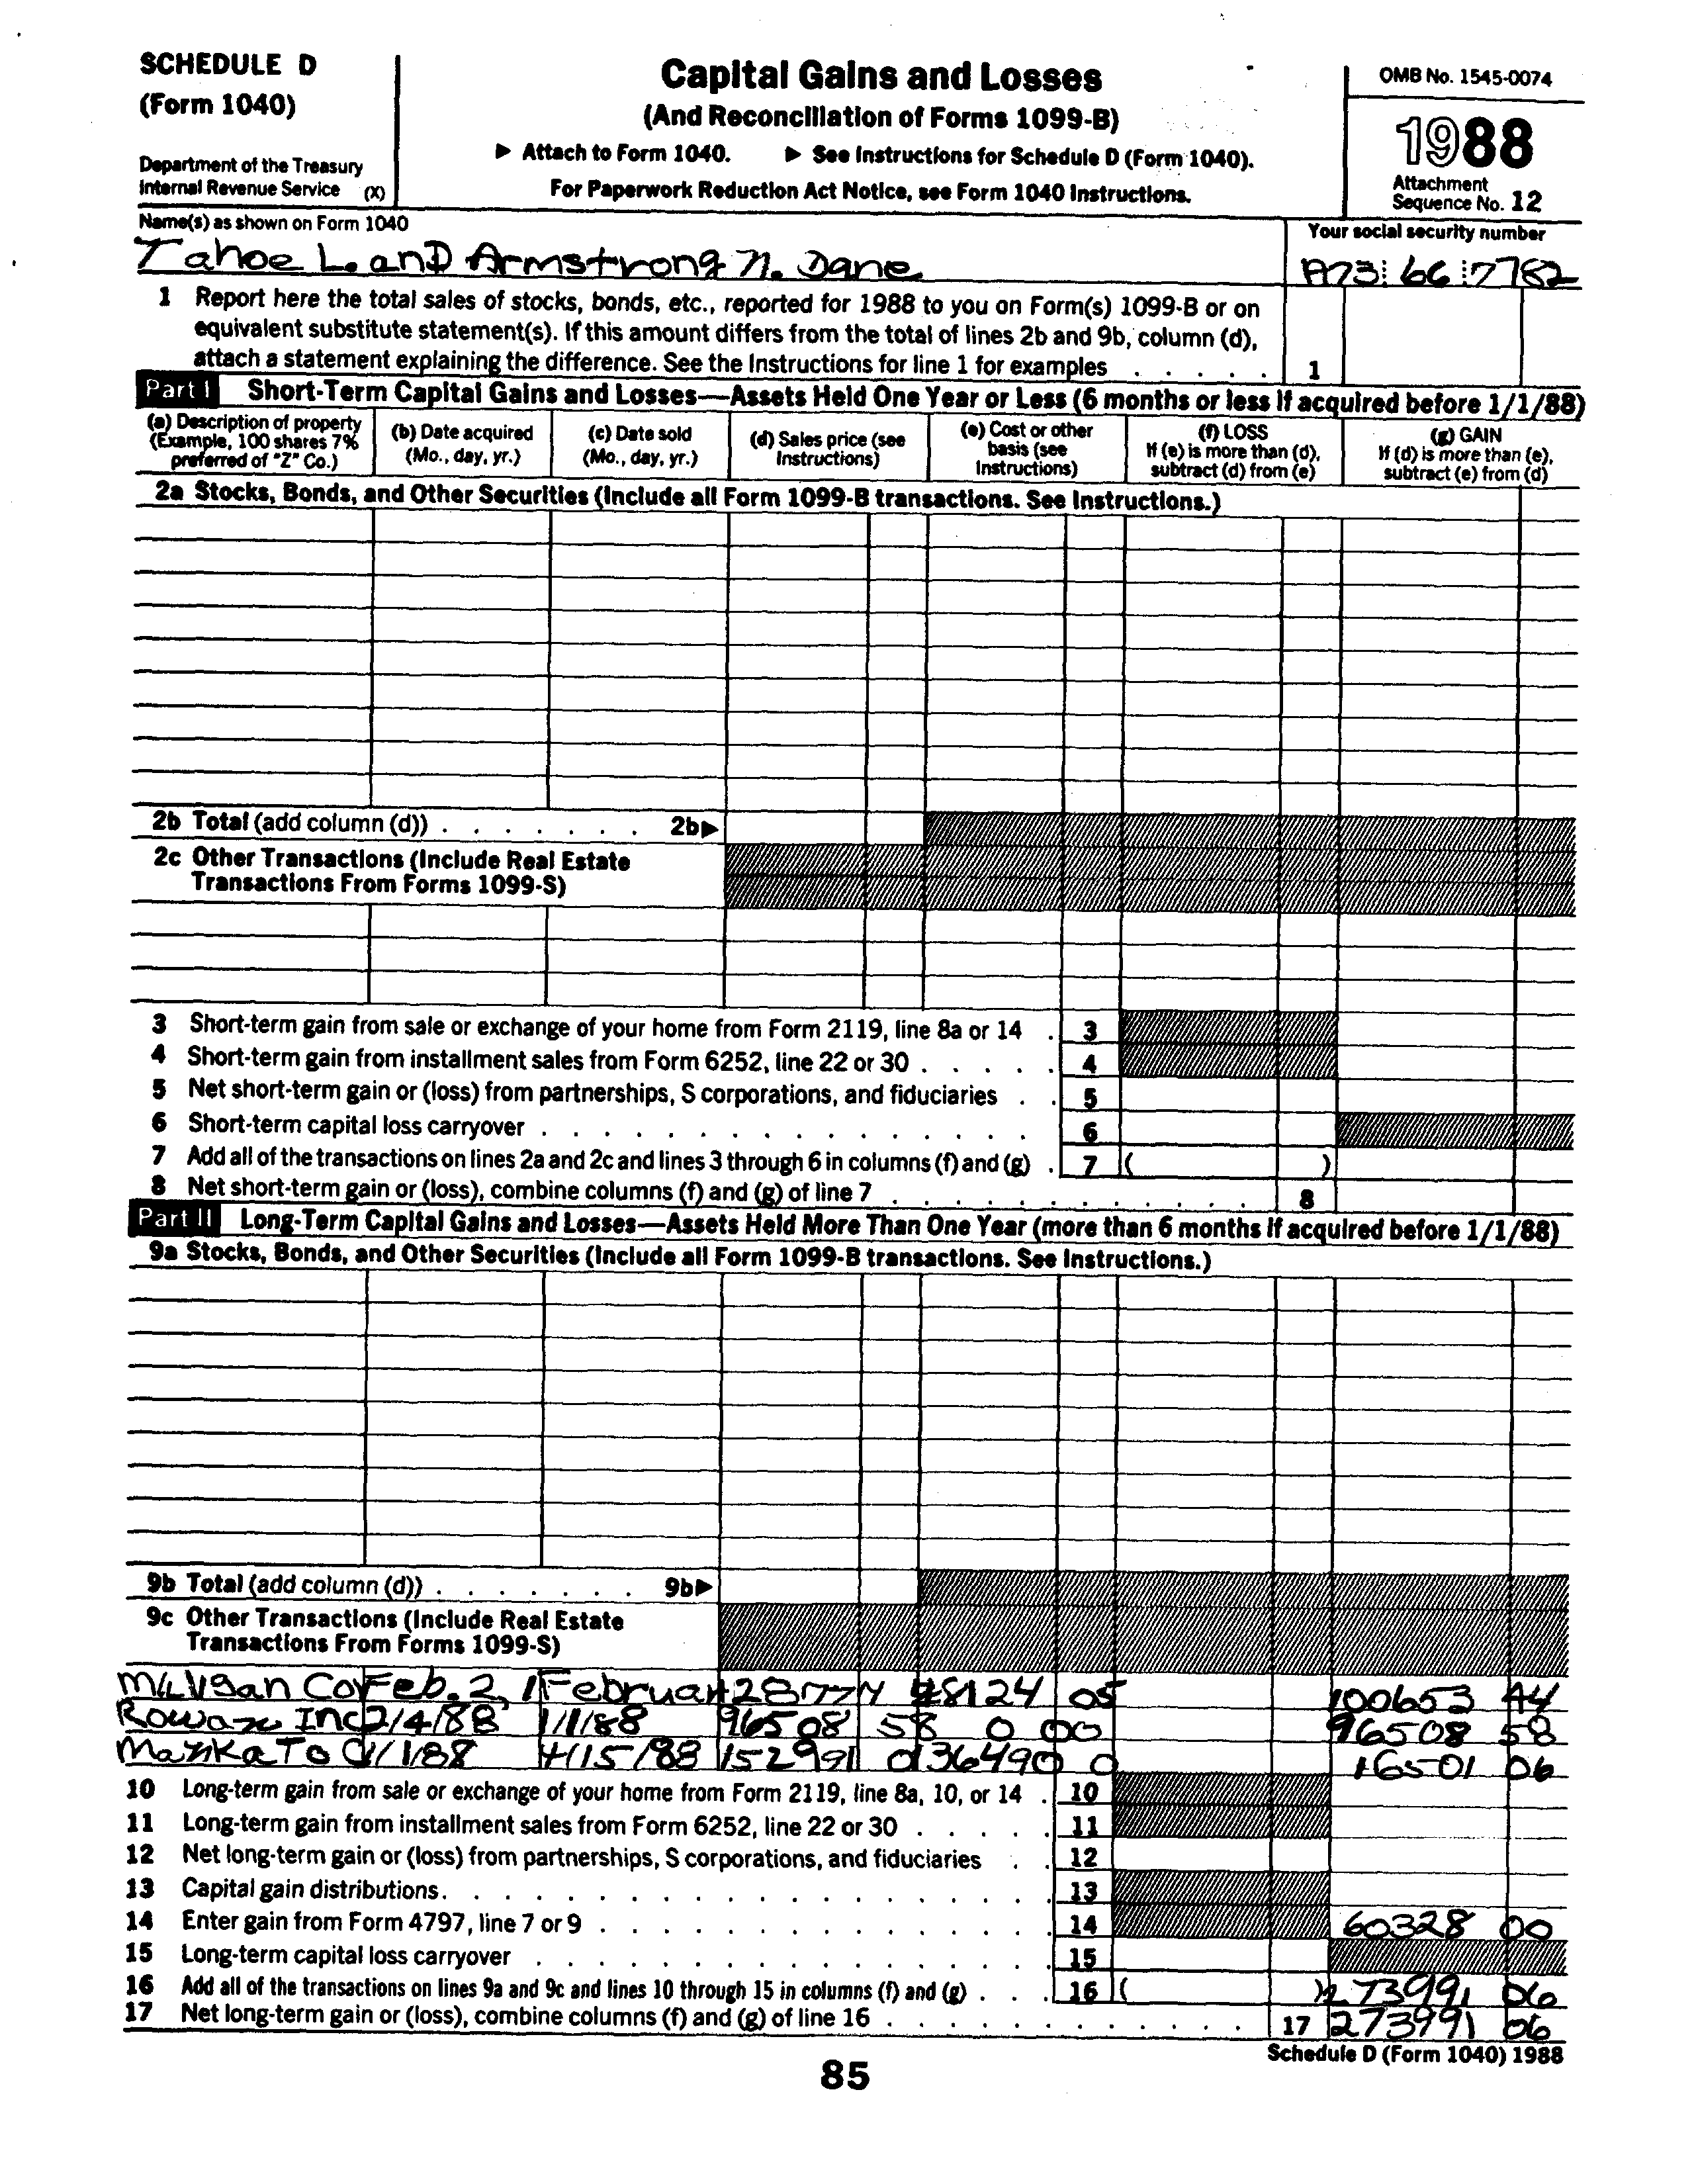 SCHEDULE D
(Form 1040)
Department of the Treasury
Internal Revenue Service (X)
Capital Gains and Losses
(And Reconciliation of Forms 1099-B)
▶ Attach to Form 1040. ▶ See Instructions for Schedule D (Form 1040).
For Paperwork Reduction Act Notice, see Form 1040 Instructions.
OMB No. 1545-0074
1988
Attachment
Sequence No. 12
Name(s) as shown on Form 1040
Tahoe L. and Armstrong N. Dane
Your social security number
A73 66 7782
1 Report here the total sales of stocks, bonds, etc., reported for 1988 to you on Form(s) 1099-B or on
equivalent substitute statement(s). If this amount differs from the total of lines 2b and 9b, column (d),
attach a statement explaining the difference. See the Instructions for line 1 for examples . . . . . 1
Part I Short-Term Capital Gains and Losses—Assets Held One Year or Less (6 months or less if acquired before 1/1/88)
(a) Description of property
(Example, 100 shares 7%
preferred of "Z" Co.)
(b) Date acquired
(Mo., day, yr.)
(c) Date sold
(Mo., day, yr.)
(d) Sales price (see
Instructions)
(e) Cost or other
basis (see
Instructions)
(f) LOSS
If (e) is more than (d),
subtract (d) from (e)
(g) GAIN
If (d) is more than (e),
subtract (e) from (d)
2a Stocks, Bonds, and Other Securities (Include all Form 1099-B transactions. See Instructions.)
2b Total (add column (d)) . . . . . . . 2b▶
2c Other Transactions (Include Real Estate
Transactions From Forms 1099-S)
3 Short-term gain from sale or exchange of your home from Form 2119, line 8a or 14 . 3
4 Short-term gain from installment sales from Form 6252, line 22 or 30 . . . . . 4
5 Net short-term gain or (loss) from partnerships, S corporations, and fiduciaries . . 5
6 Short-term capital loss carryover . . . . . . . . . . . . . . . . 6
7 Add all of the transactions on lines 2a and 2c and lines 3 through 6 in columns (f) and (g) . 7 ( )
8 Net short-term gain or (loss), combine columns (f) and (g) of line 7 . . . . . . . . . . . . 8
Part II Long-Term Capital Gains and Losses—Assets Held More Than One Year (more than 6 months if acquired before 1/1/88)
9a Stocks, Bonds, and Other Securities (Include all Form 1099-B transactions. See Instructions.)
9b Total (add column (d)) . . . . . . . 9b▶
9c Other Transactions (Include Real Estate
Transactions From Forms 1099-S)
Feb. 2, 1 Februar 48124 05 100653 44
Inc 2/4/88 1/1/88 96508 58 0 00 96508 58
1/1/88 4/15/88 152991 0 136490 0 16501 06
10 Long-term gain from sale or exchange of your home from Form 2119, line 8a, 10, or 14 . 10
11 Long-term gain from installment sales from Form 6252, line 22 or 30 . . . . . 11
12 Net long-term gain or (loss) from partnerships, S corporations, and fiduciaries . . 12
13 Capital gain distributions . . . . . . . . . . . . . . . . . . . 13
14 Enter gain from Form 4797, line 7 or 9 . . . . . . . . . . . . . . 14 60328 00
15 Long-term capital loss carryover . . . . . . . . . . . . . . . . 15
16 Add all of the transactions on lines 9a and 9c and lines 10 through 15 in columns (f) and (g) . . . 16 ( ) 273991 06
17 Net long-term gain or (loss), combine columns (f) and (g) of line 16 . . . . . . . . . . . . 17 273991 06
Schedule D (Form 1040) 1988
85